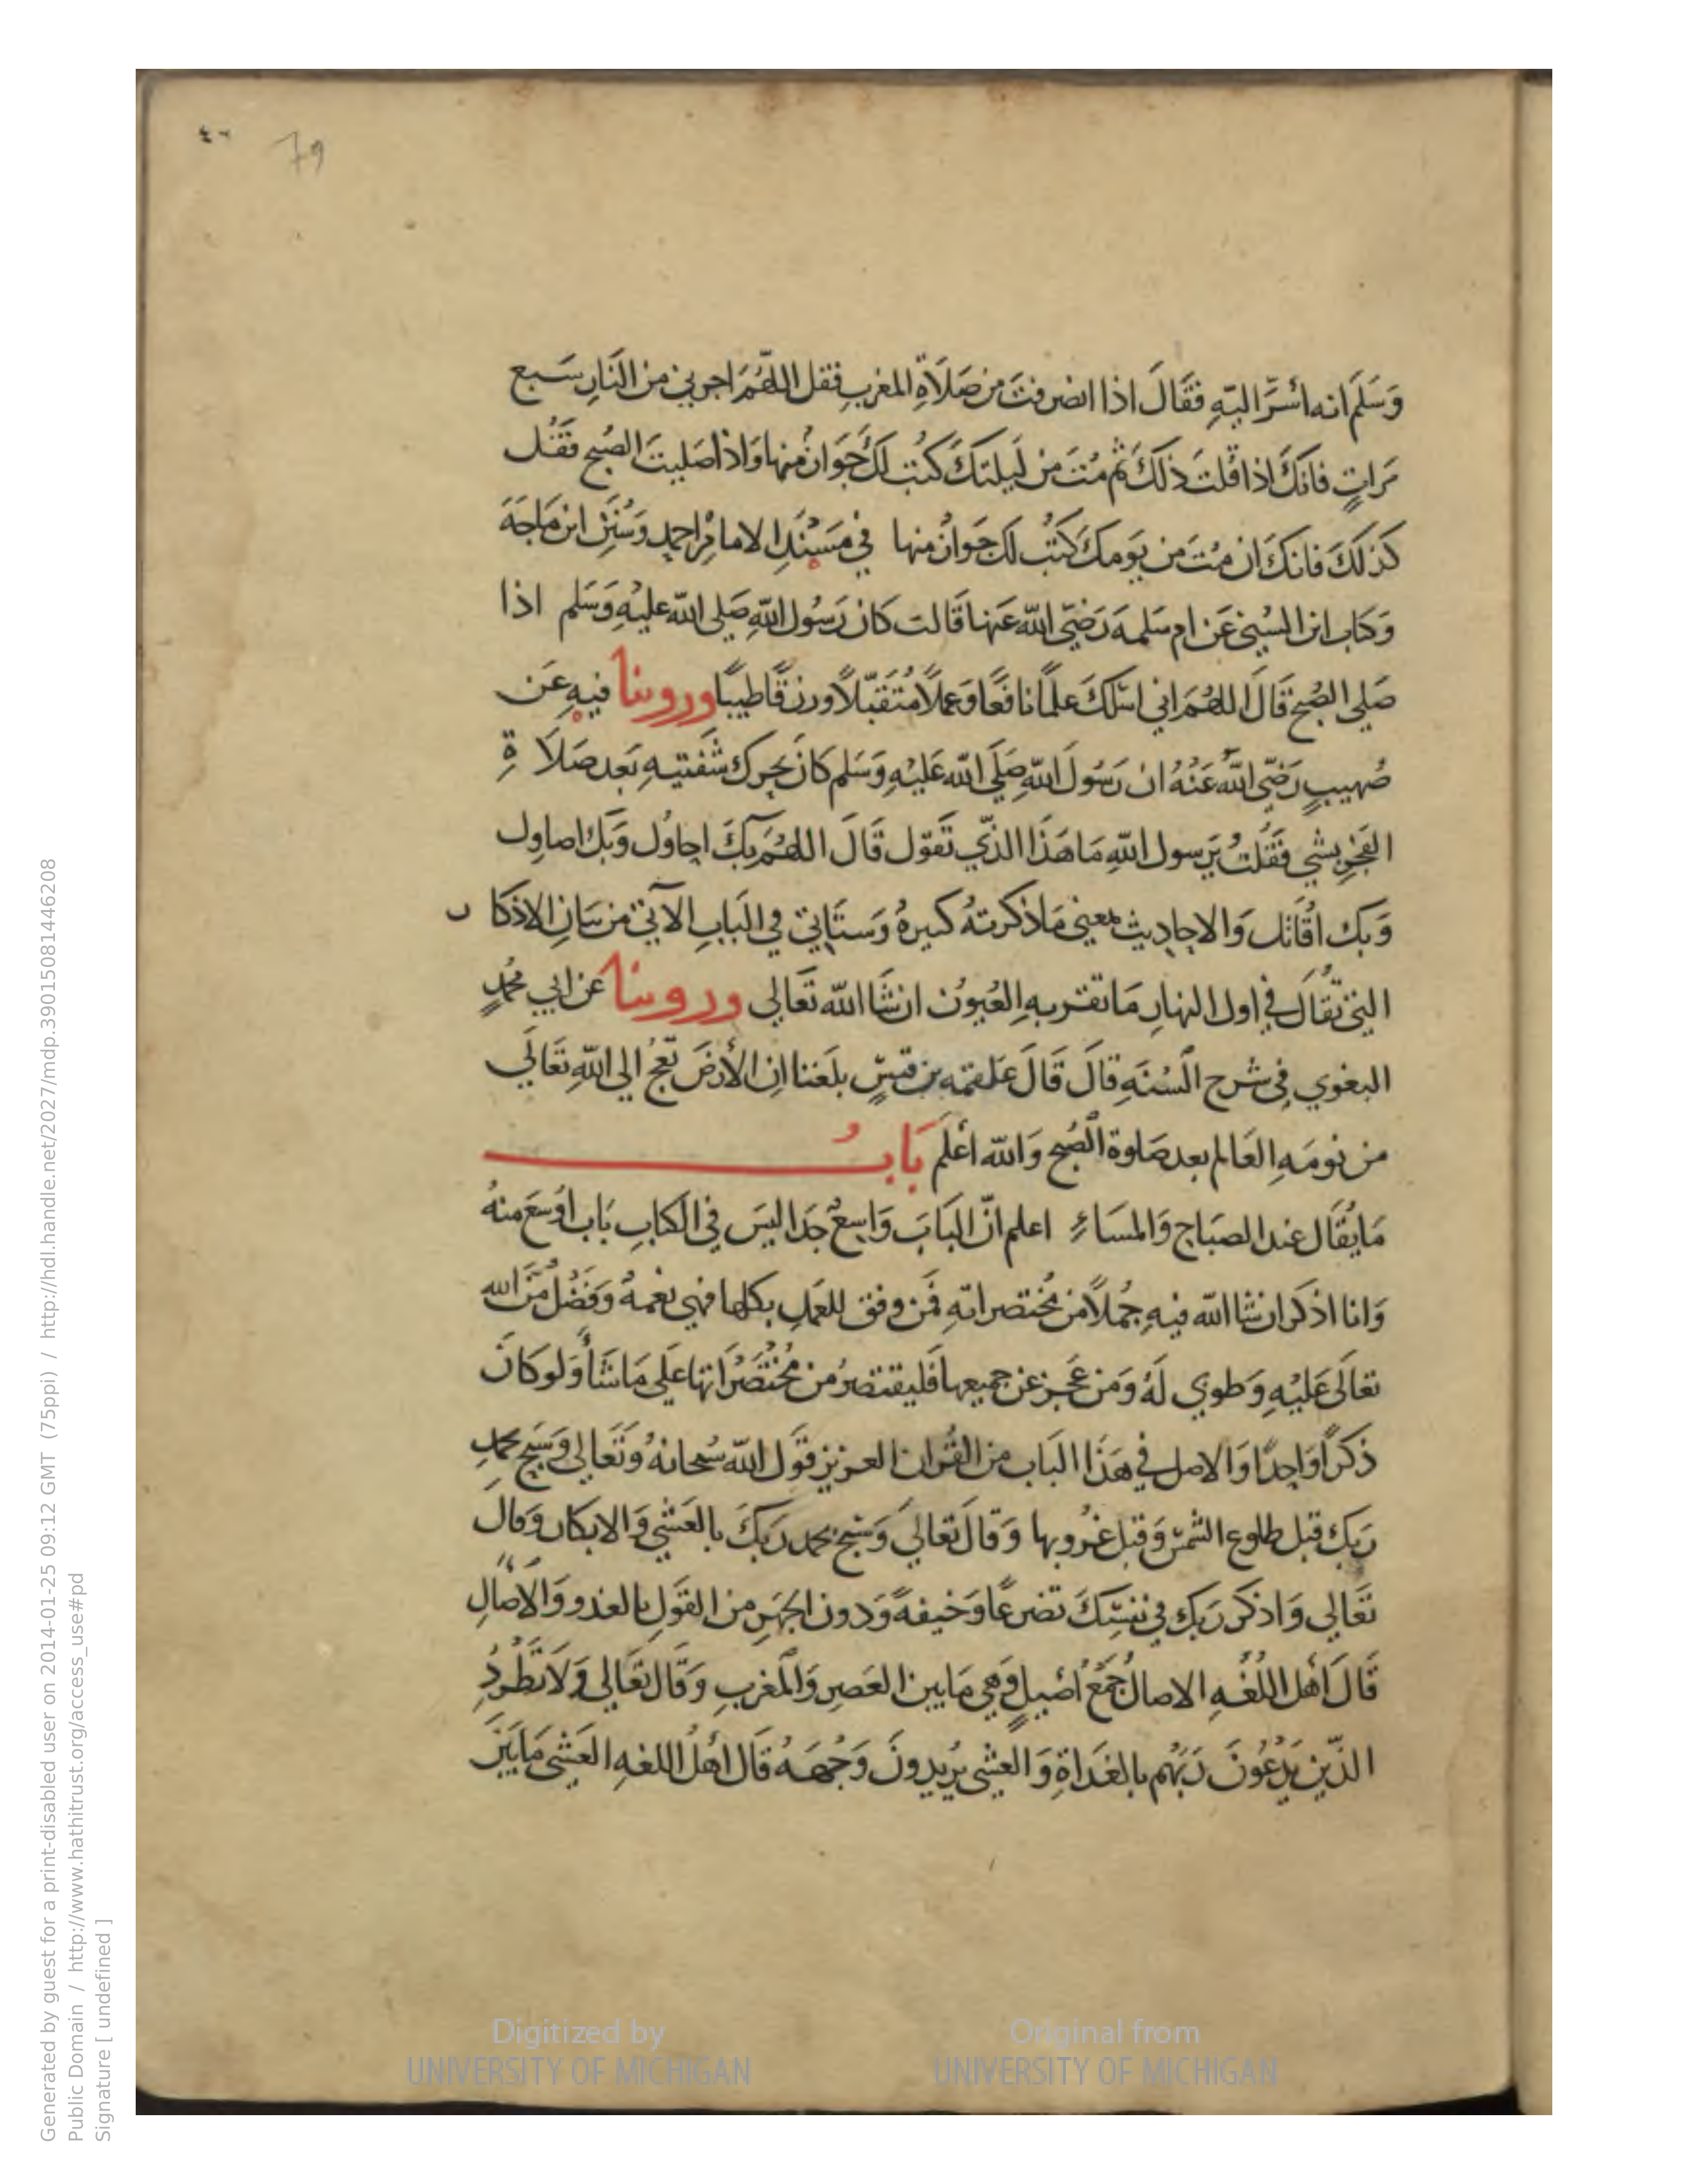 ٤٦
79
وَسَلَمَ انه أسَرَّ اليّهِ فَقَالَ اذا انصرفتَ من صَلَاةِ المغربِ فقل اللهُمَ اجرني من النَارِ سَبع
مَراتٍ فانكَ اذا قلتَ ذلكَ ثم مُتَ من لَيلتكَ كُتبَ لكَ جَوازٌ منها وَاذا صَليتَ الصُبح فقُل
كَذلكَ فانكَ ان مُتَ من يَومكَ كُتبُ لك جَوازٌ منها في مسَندِ الامام احمد وَسُنَنِ ابن مَاجَهَ
وَكتاب ابن السُني عَن ام سَلمه رَضيَ اللّه عَنها قَالت كانَ رَسُول اللّهِ صَلى اللّه عليْهِ وَسَلم اذا
صَلى الصُبح قَالَ اللهُمَ اني اسْئلكَ علمًا نافعًا وَعملًا مُتَقَبّلًا ورزقًا طيبًا وروينا فيهِ عَن
صُهيبٍ رَضيَ اللّهُ عَنْهُ ان رَسُولَ اللّهِ صَلَى اللّه عَليْهِ وَسَلم كانَ يحرك شَفتيهِ بَعد صَلَا ةِ
الفَجْرِ بشي فقُلتُ يَرسول اللّهِ مَا هَذَا الذّي تَقول قَالَ اللهُمَ بكَ احاوُل وَبكَ اصاول
وَبك اقَاتل وَالاحاديث بمعنى مَا ذكرتهُ كثيرهُ وَستَاتي في البَابِ الآتي من بيَانِ الاذكا ر
التي تُقالُ في اول النهارِ مَا تقر بهِ العُيوُن ان شَا اللّه تَعالي وروينا عَن ابي محُمدٍ
البغوي في شرح السُنَهِ قالَ قَالَ عَلقمَه بن قيسٍ بلَغنا ان الأرضَ تَعِجُ الى اللّهِ تَعَالَي
من نَومَهِ العَالم بعد صَلوة الصُبح وَاللّه أعْلَم بَابُ
مَا يُقَال عند الصبَاح وَالمسَاءِ اعلم انّ البَابَ وَاسِعٌ جدَا ليسَ في الكتابِ بَاب اوُسَعَ منهُ
وَانا اذكر ان شا اللّه فيهِ جُملًا من مخُتصراتهِ فمَن وفق للعَملِ بكلها فهي نعْمهُ وَفَضْلُ مَّنَ الله
تعالَى عَليْهِ وَطوبى لَهُ وَمَن عَجز عن جميعها فَليقتصرُ من مُختصَرَاتها علي مَا شَأ وَلو كانَ
ذكراً وَاحدًا وَالاصل في هَذَا البَاب من القُران العزيز قَول اللّه سُبحانهُ وَتَعَالى وَسَبح بحمدِ
رَبك قبل طلوع الشمسْ وَقبل غرُوبها وَقالَ تَعالي وَسَبح بحمد ربَكَ بالعَشي وَالابكار وَقال
تَعَالي وَاذكر رَبك في نفسِكَ تضرعًا وَخيفةً وَدون الجَهرِ من القَولِ بالغدو وَالأصَالِ
قَالَ أهْل اللُغَهِ الاصالُ جَمْعُ أصيلٍ وَهي مَا بين العَصرِ وَالمغربِ وَقَال تعَالي وَلَا تَطْردِ
الذّين يَدْعُونَ رَبَهُم بالغَداةِ وَالعشي يُريدونَ وَجْهَهُ قَال أهْلُ اللغهِ العَشي مَا بَينَ
Generated by guest for a print-disabled user on 2014-01-25 09:12 GMT (75ppi) / http://hdl.handle.net/2027/mdp.39015081446208
Public Domain / http://www.hathitrust.org/access_use#pd
Signature [ undefined ]
Digitized by
UNIVERSITY OF MICHIGAN
Original from
UNIVERSITY OF MICHIGAN